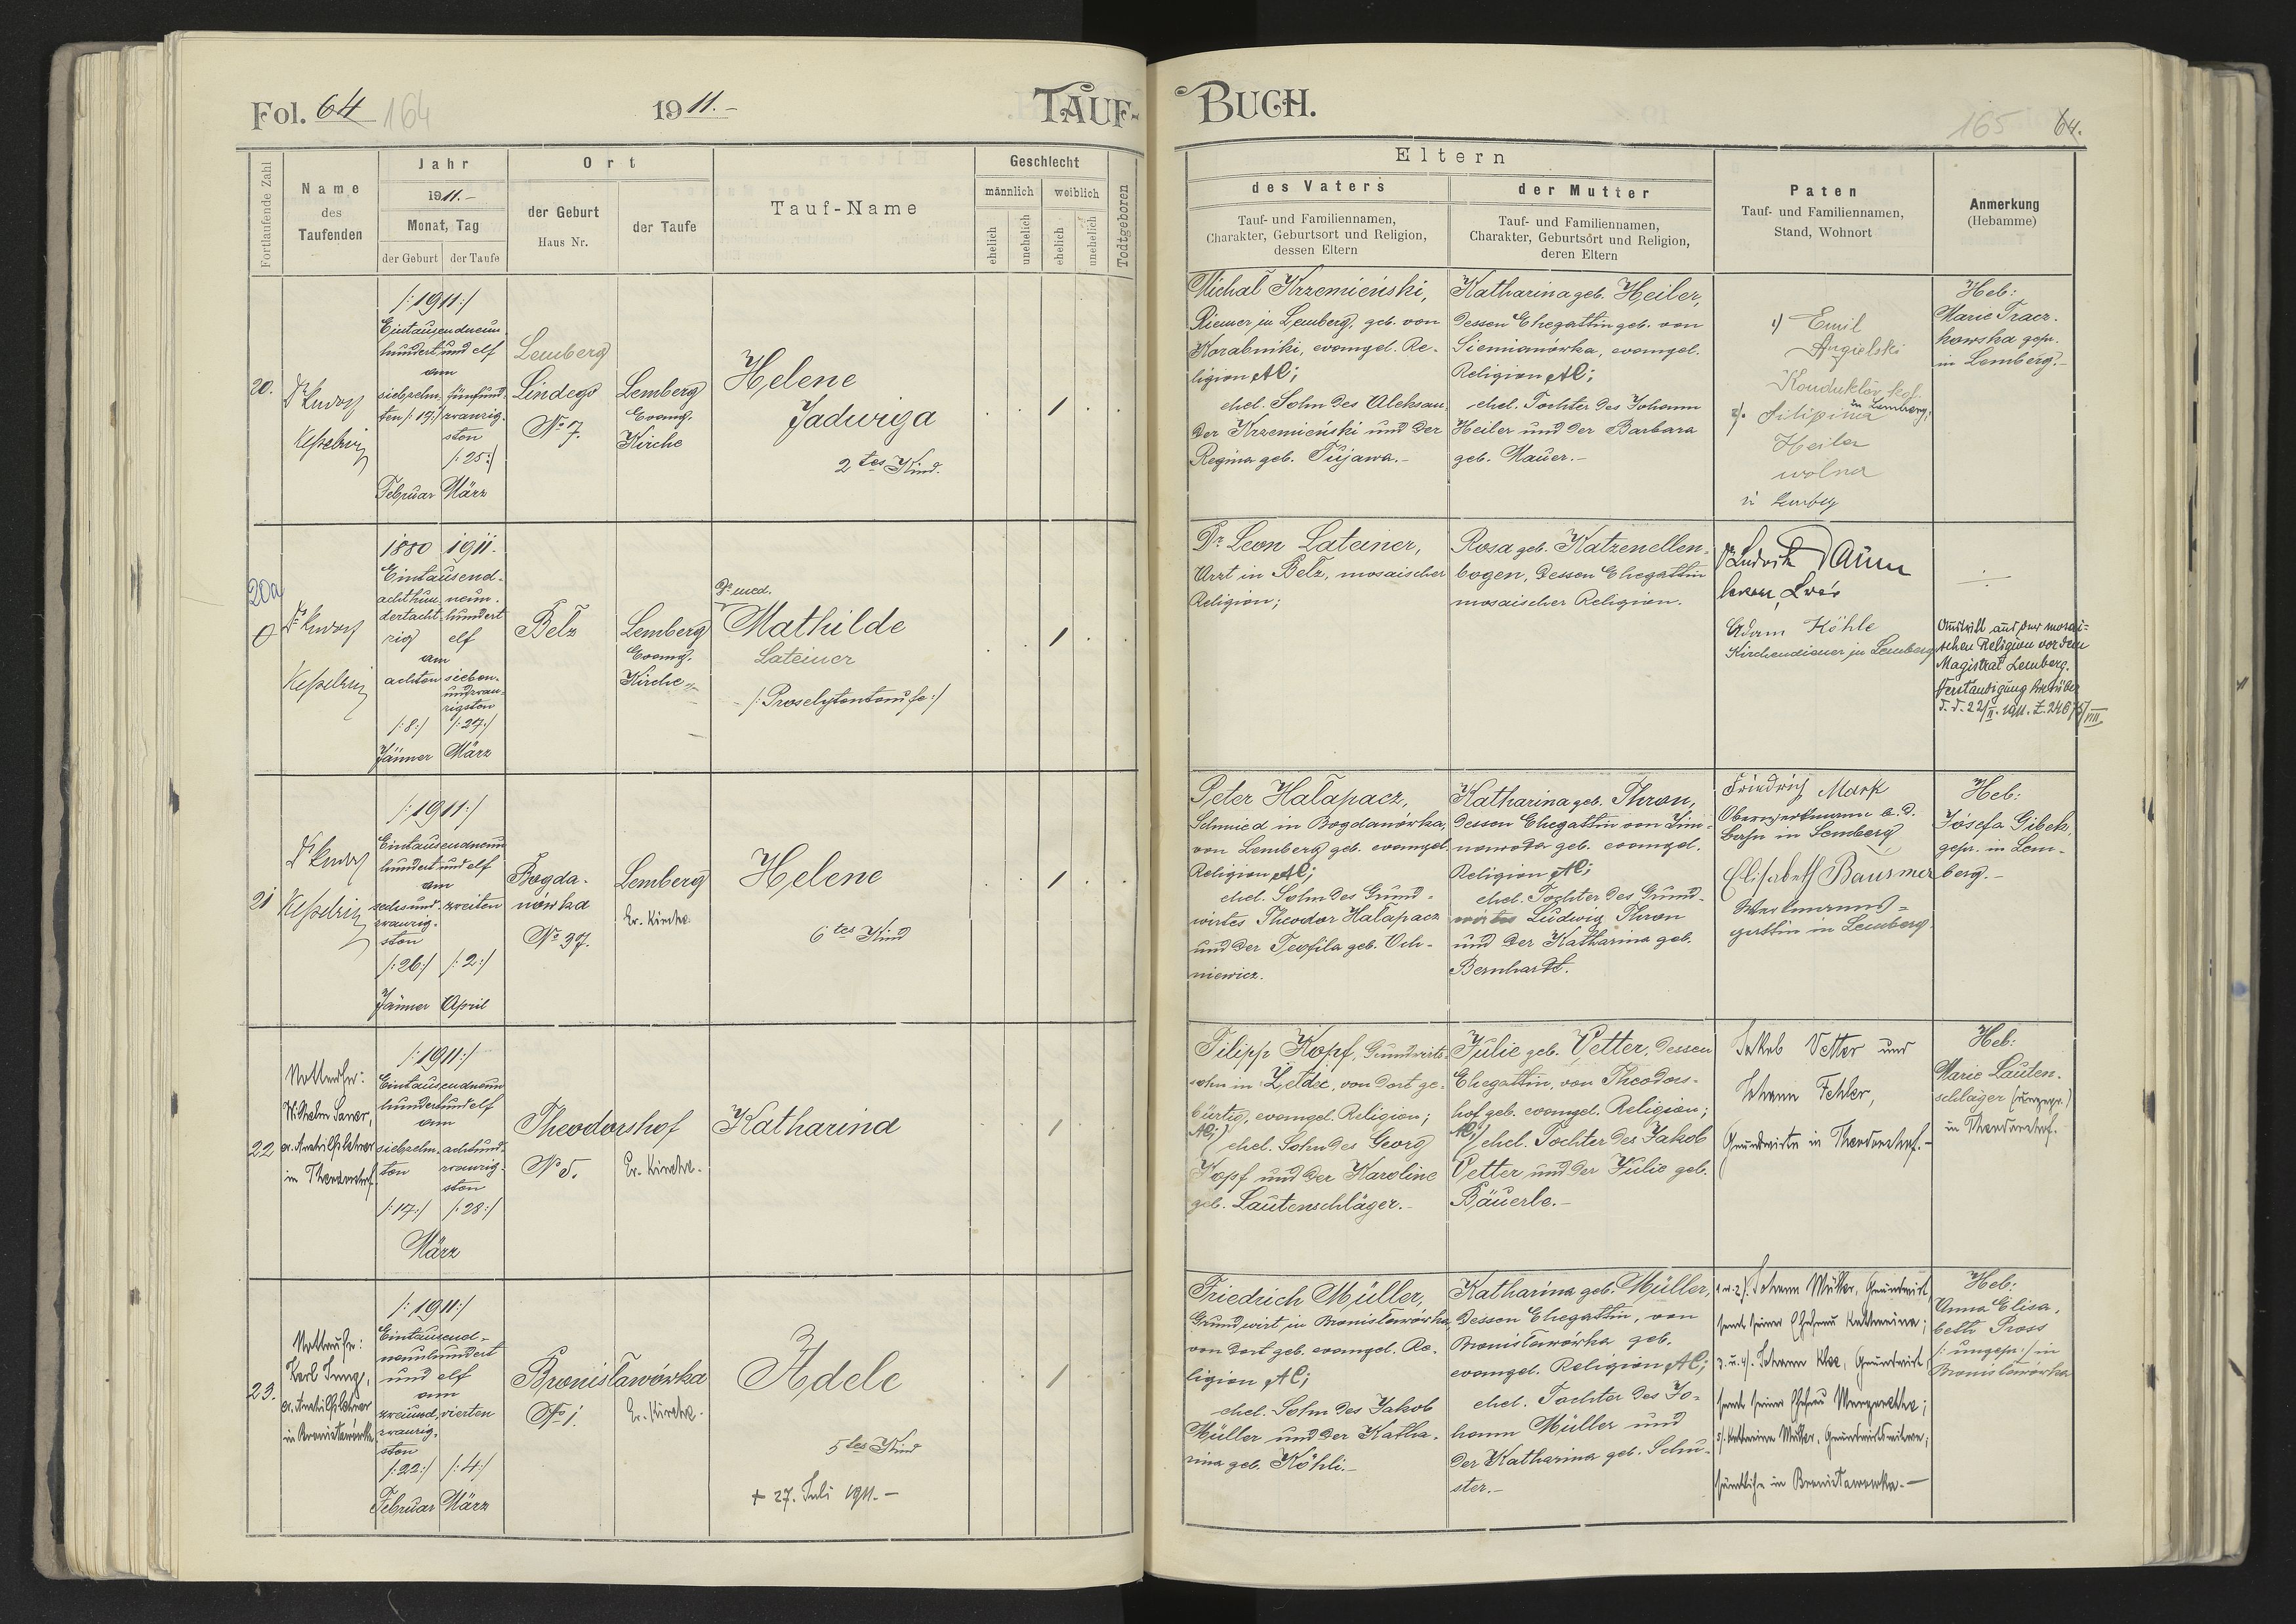 Fol. 64 164
1911.-
TAUF-
BUCH.
165 64.
Fortlaufende Zahl
Name
des
Taufenden
Jahr
1911.-
Monat, Tag
der Geburt
der Taufe
Ort
der Geburt
Haus Nr.
der Taufe
Tauf-Name
Geschlecht
männlich
weiblich
ehelich
unehelich
ehelich
unehelich
Todtgeboren
Eltern
des Vaters
Tauf- und Familiennamen,
Charakter, Geburtsort und Religion,
dessen Eltern
der Mutter
Tauf- und Familiennamen,
Charakter, Geburtsórt und Religion,
deren Eltern
Paten
Tauf- und Familiennamen,
Stand, Wohnort
Anmerkung
(Hebamme)
20.
Dr
Kesselring
/:1911:/
Eintausendneun
hundert und elf
am
siebzehn-
ten /:17:/
Februar
fünfund-
zwanzig-
sten
/:25:/
März
Lemberg
Lindego
No 7.
Lemberg
Evang.
Kirche
Helene
Jadwiga
2tes Kind.
Michał Krzemieński,
Riemer in Lemberg, geb. von
Korabniki, evangel. Re-
ligion AC;
ehel. Sohn des Aleksan-
der Krzemieński und der
Regina geb. Pujawa.-
Katharina geb. Heiler,
dessen Ehegattin geb. von
Siemianówka, evangel.
Religion AC;
ehel. Tochter des Johann
Heiler und der Barbara
geb. Mauer.-
1) Emil
Angielski
Konduktör
in Lemberg;
2). Filipina
Heiler
wolna
in Lemberg
Heb:
Marie Tracz-
kowska gepr.
in Lemberg.-
20a
0
Dr
Kesselring
1880
1911.
Eintausend-
achthun-
dertacht-
zig
neun-
hundert
elf
am
achten
/:8:/
Jänner
sieben-
undzwan-
zigsten
/:27:/
März
Belz
Lemberg
Evang.
Kirche
Dr med.
Mathilde
Lateiner
/:Proselytentaufe:/
Dr Leon Lateiner,
Arzt in Belz, mosaischer
Religion;
Rosa geb. Katzenellen-
bogen, dessen Ehegattin
mosaischer Religion.
Dr Ludwik
Lwów
Adam Köhle
Kirchendiener in Lemberg
Austritt aus der mosai-
schen Religion vor dem
Magistrat Lemberg.
Verständigung hierüber
d.d. 22/II. 1911. Z. 24675/VIII
21
Dr
Kesselring
/:1911:/
Eintausendneun
hundert und elf
am
sechsund-
zwanzig-
sten
/:26:/
Jänner
zweiten
/:2:/
April
Bogda-
nówka
No 37.
Lemberg
Ev. Kirche.
Helene
6tes Kind
Peter Hałapacz,
Schmied in Bogdanówka,
von Lemberg geb. evangel.
Religion AC;
ehel. Sohn des Grund-
wirtes Theodor Hałapacz
und der Teofila geb. Och-
niewicz.
Katharina geb. Thron,
dessen Ehegattin von Zim-
nawoda geb. evangel.
Religion AC;
ehel. Tochter des Grund-
wirtes Ludwig Thron
und der Katharina geb.
Bernhardt.
Friedrich Mark
Oberwerkmann a. d.
Bahn in Lemberg
Elisabeth Bausmer
Werkmanns-
gattin in Lemberg.
Heb:
Józefa Gibek,
gepr. in Lem-
berg.-
22
Nottaufe:
Wilhelm Sauer,
ev. Aushilfslehrer
in Theodorshof.
/:1911:/
Eintausendneun
hundert und elf
am
siebzehn-
ten
/:17:/
achtund-
zwanzig-
sten
/:28:/
März
Theodorshof
No 5.
Ev. Kirche.
Katharina
Filipp Kopf, Grundwirts-
sohn in Żełdec, von dort ge-
bürtig, evangel. Religion;
AC;/ ehel. Sohn des Georg
Kopf und der Karoline
geb. Lautenschläger.-
Julie geb. Vetter, dessen
Ehegattin, von Theodors-
hof geb. evangel. Religion;
AC;/ ehel. Tochter des Jakob
Vetter und der Julie geb.
Bäuerle.-
Jakob Vetter und
Johann Fehler,
Grundwirte in Theodorshof.-
Heb:
Marie Lauten-
schläger (ungepr.)
in Theodorshof.
23.
Nottaufe:
Karl Jung,
ev. Aushilfslehrer
in Bronisławówka
/:1911:/
Eintausend-
neunhundert
und elf
am
zweiund-
zwanzig-
sten
/:22:/
Februar
vierten
/:4:/
März
Bronisławówka
No 1.
Ev. Kirche.
Adele
5tes Kind
+ 27. Juli 1911.-
Friedrich Müller,
Grundwirt in Bronisławówka,
von dort geb. evangel. Re-
ligion AC;
ehel. Sohn des Jakob
Müller und der Katha-
rina geb. Köhli.-
Katharina geb. Müller,
dessen Ehegattin, von
Bronisławówka geb.
evangel. Religion AC;
ehel. Tochter des Jo-
hann Müller und
der Katharina geb. Schu-
ster.-
1 u. 2). Johann Müller, Grundwirt,
samt seiner Ehefrau Katharina;
3. u. 4). Johann Klee, Grundwirt
samt seiner Ehefrau Margarethe;
5). Katharina Müller, Grundwirtswitwe;
sämtliche in Bronisławówka.-
Heb:
Anna Elisa-
beth Pross
/:ungepr:/ in
Bronisławówka